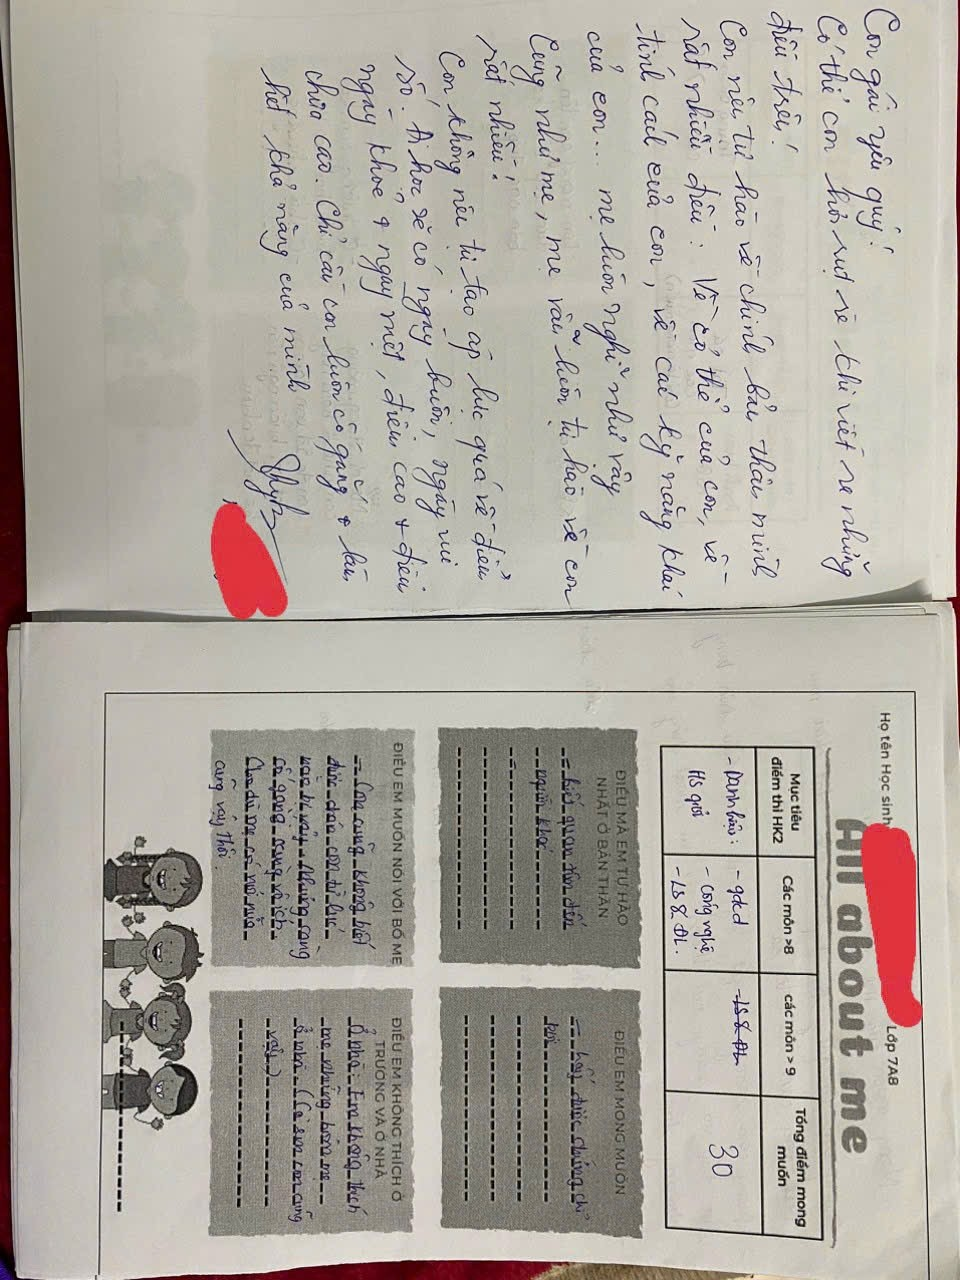 Con gái yêu quý!
Có thể con hơi rụt rè khi viết ra những
điều trên!
Con nên tự hào về chính bản thân mình
rất nhiều điều: Về cơ thể của con, về
tính cách của con, về các kỹ năng khác
của con... mẹ luôn nghĩ như vậy
Cũng như mẹ, mẹ vẫn luôn tự hào về con
rất nhiều!
Con không nên tự tạo áp lực quá về điểm
số. Ai học sẽ có ngày buồn, ngày vui
ngày khoẻ & ngày mệt, điểm cao & điểm
chưa cao. Chỉ cần con luôn cố gắng & làm
hết khả năng của mình
Họ tên Học sinh
Lớp 7A8
All about me
Mục tiêu điểm thi HK2
Các môn >8
các môn > 9
Tổng điểm mong muốn
- Danh hiệu:
HS giỏi
- gdcd
- công nghệ
- LS & ĐL.
- LS & ĐL
30
ĐIỀU MÀ EM TỰ HÀO NHẤT Ở BẢN THÂN
- biết quan tâm đến
người khác
ĐIỀU EM MONG MUỐN
- lấy được chứng chỉ
ĐIỀU EM MUỐN NÓI VỚI BỐ MẸ
- Con cũng không biết
được chán con từ lúc
nào bị vậy. Nhưng càng
cố gắng càng vô ích.
Cho dù mẹ có nói nữa
cũng vậy thôi.
ĐIỀU EM KHÔNG THÍCH Ở TRƯỜNG VÀ Ở NHÀ
Ở nhà: Em không thích
mẹ những hôm mẹ
ở nhà (Cả em con cũng
vậy)